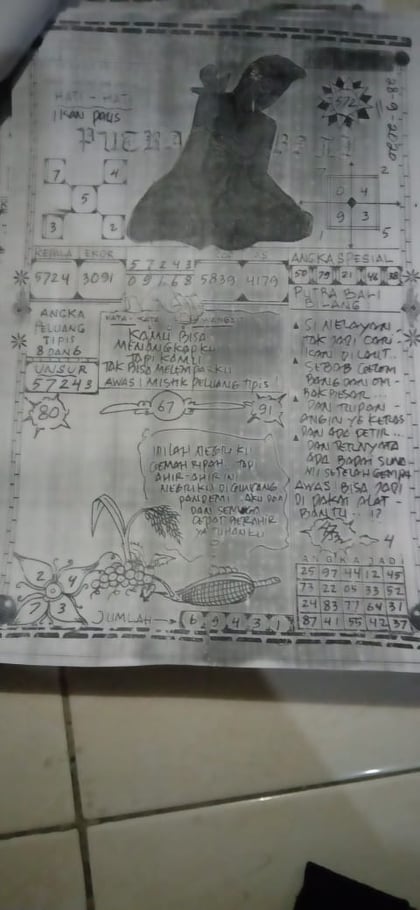 HATI - HATI
IKAN PAUS
28-9-2020
572
PUTRA BALI
7 4
5
3 2
7 2
0 4
9 3
5
KEPALA EKOR
5724 3091
5 7 2 4 3
0 9 1 6 8
5839 4179
ANGKA SPESIAL
50 79 21 46 38
ANGKA
PELUANG
TIPIS
8 DANG
UNSUR
57243
80
KATA - KATA
KAMU BISA
MENANGKAPKU
TAPI KAMU
TAK BISA MELEMPARKU
AWAS! MISTIK PELUANG TIPIS
67
91
INILAH NEGRI KU
GEMAH RIPAH... TAPI
AHIR-AHIR INI
NEGRI KU DI GUNCANG
PANDEMI. AKU DOA
DAN SEMOGA
CEPAT BERAHIR
YA TUHANKU
PUTRA BALI
BILANG
SI NELAYAN
TAK JADI CARI
IKAN DI LAUT
SEBAB GELOM-
BANG DAN OM-
BAK BESAR...
DAN TIUPAN
ANGIN YG KERAS
DAN ADA PETIR...
DAN TERNYATA
ADA BADAI SUNA-
MI SETELAH GEMPA
AWAS BISA JADI
DI PAKAI ALAT
BANTU...!?
4
2 4
7 3
JUMLAH → 6 9 4 3 1
ANGKA JADI
25 97 44 12 45
73 22 05 33 52
24 83 77 64 31
87 41 55 42 37